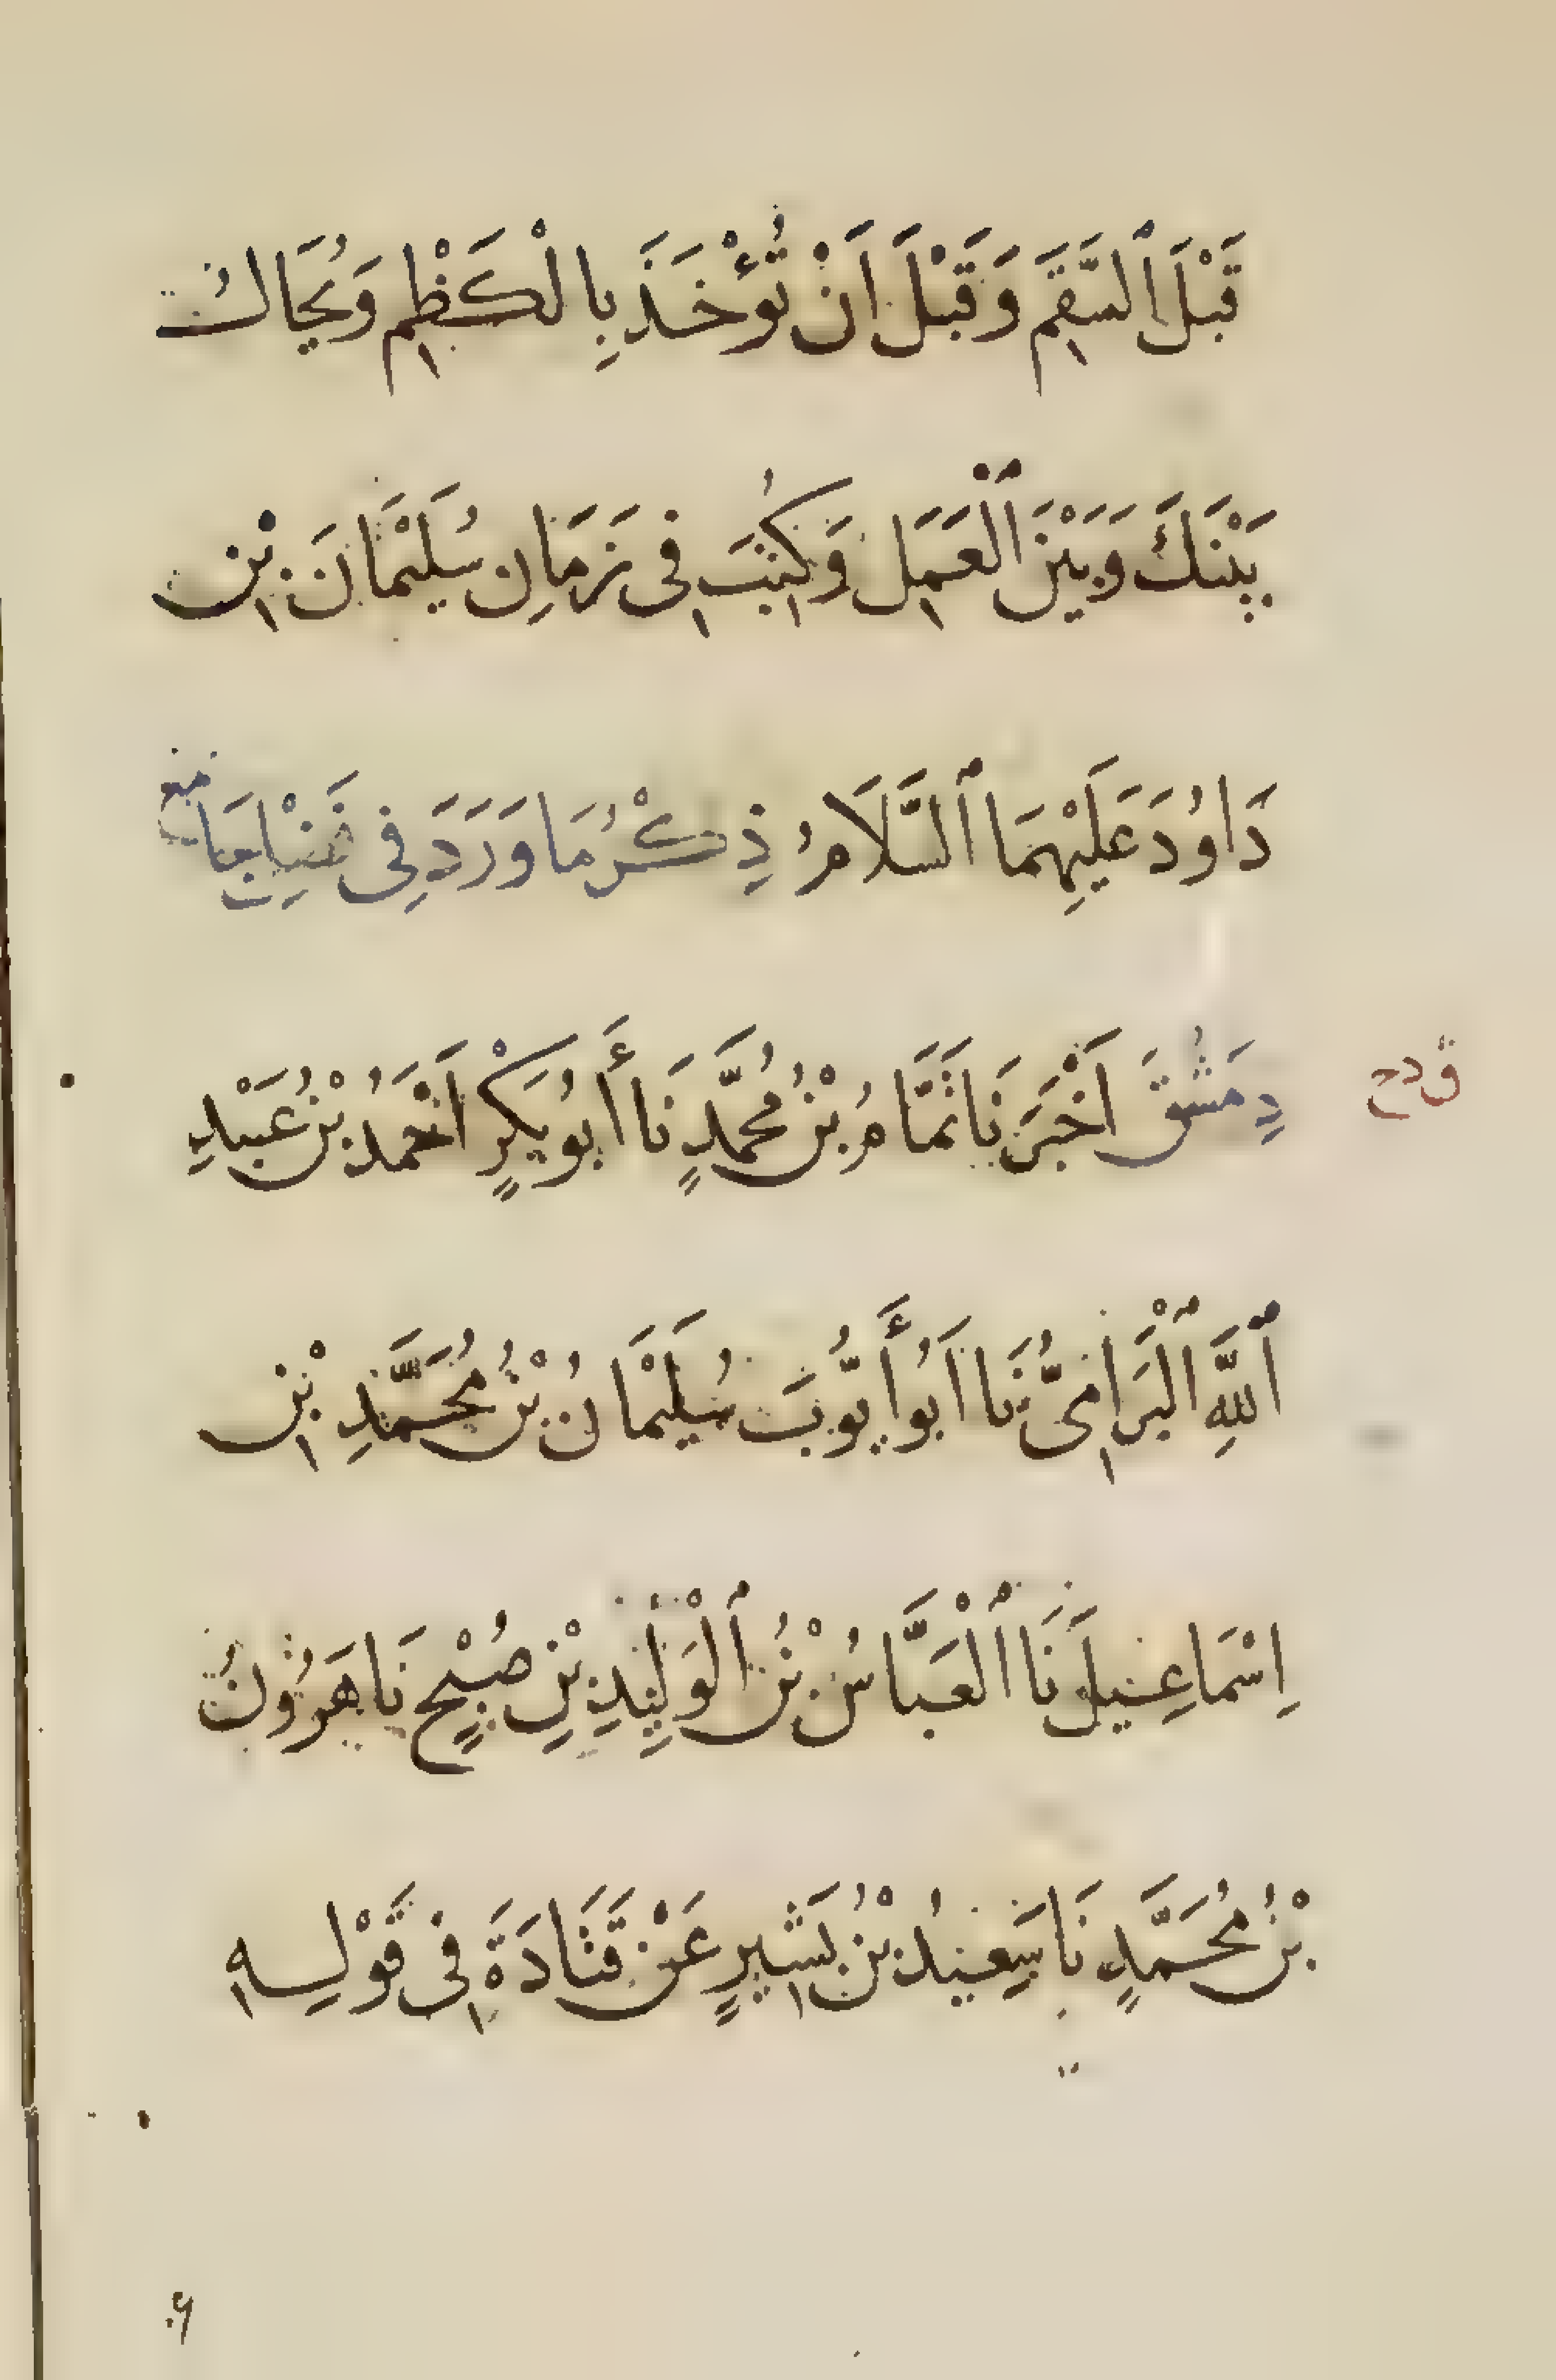 قَبْلَ ٱلسَّقَمِ وَقَبْلَ اَنْ تُؤْخَذَ بِالْكَظْمِ وَيُحَالُ
بَيْنَكَ وَبَيْنَ ٱلْعَمَلِ وَكُتِبَ فِى زَمَانِ سُلَيْمَانَ بْنِ
دَاوُدَ عَلَيْهِمَا ٱلسَّلَامُ ذِكْرُ مَا وَرَدَ فِى جَامِعِ
دِمَشْقَ اَخْبَرَنَا تَمَّامُ بْنُ مُحَمَّدٍ نَا أَبُو بَكْرٍ اَحْمَدُ بْنُ عَبْدِ
ٱللَّهِ ٱلْبَرَامِىُّ نَا اَبُو أَيُّوبَ سُلَيْمَانُ بْنُ مُحَمَّدِ بْنِ
اِسْمَاعِيلَ نَا ٱلْعَبَّاسُ بْنُ ٱلْوَلِيدِ بْنِ صُبْحٍ نَا هَرُونُ
بْنُ مُحَمَّدٍ نَا سَعِيدُ بْنُ بَشِيرٍ عَنْ قَتَادَةَ فِى قَوْلِهِ